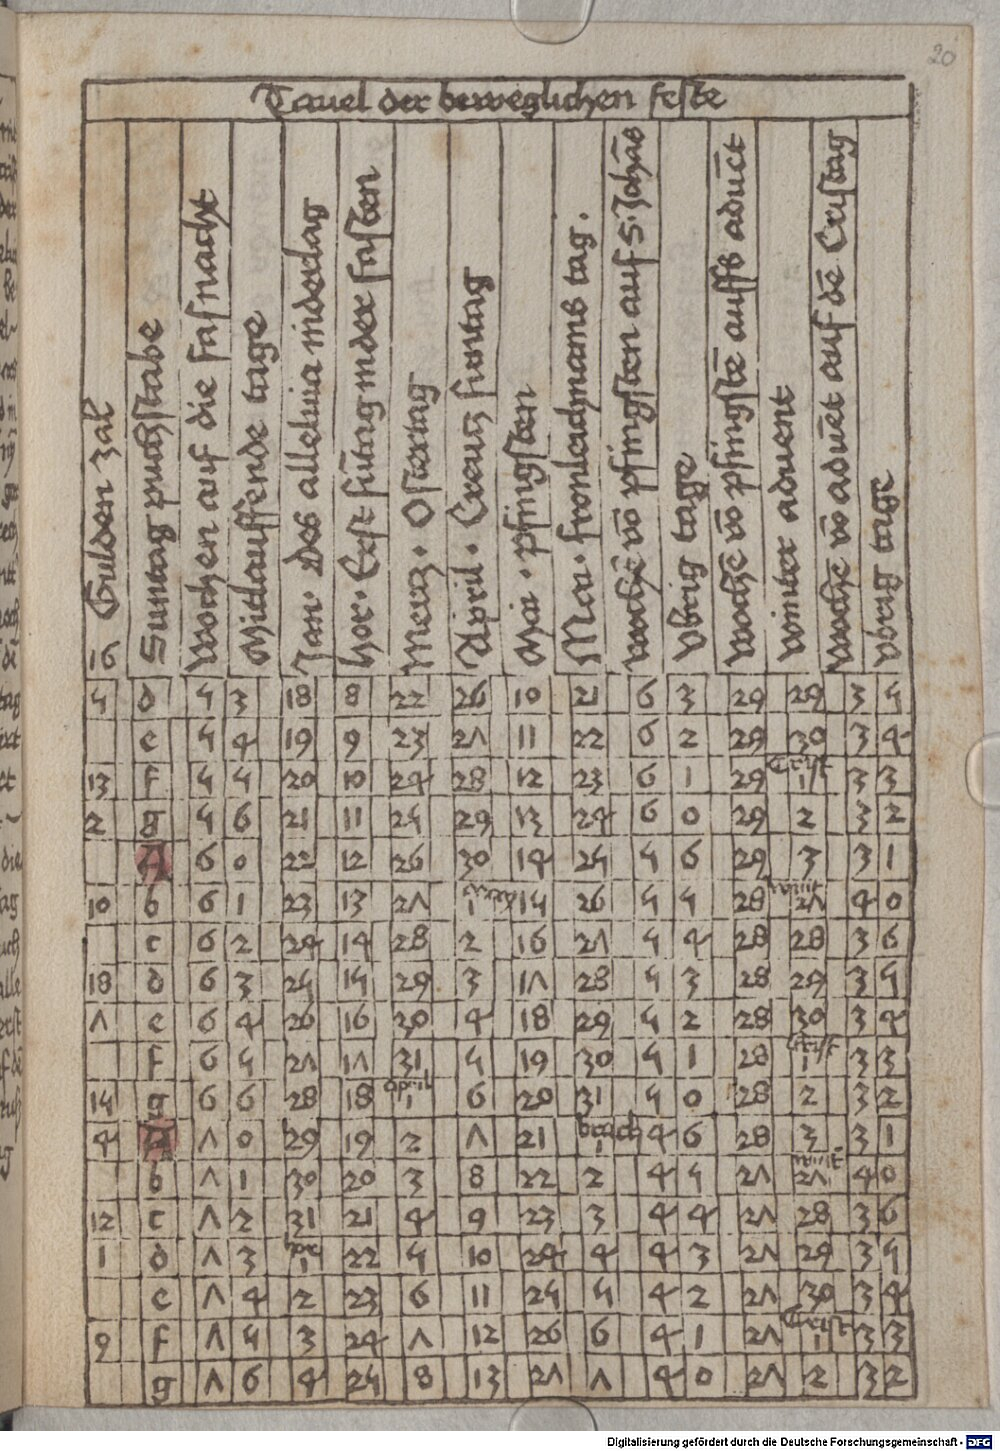 20
Tauel der beweglichen feste
16 Gulden zal
Suntag puchstabe
Wochen auf die fasnacht
Mitlauffende tage
Jan · Des alleluia niderlag
Hor · Erst sūtag in der fasten
Mercz · Ostertag
April · Creucz suntag
Mai · pfingsten
Mai · fronleichnams tag ·
Wochē vō pfingsten auf S. Johās
Vbrig tage
Wochē vō pfingstē auffs aduēt
Winter aduent
Wochē vō aduēt auf dē Cristag
Vbrig tage
5 d 5 3 18 8 22 26 10 21 6 3 29 29 3 5
e 5 4 19 9 23 27 11 22 6 2 29 30 3 4
13 f 5 5 20 10 24 28 12 23 6 1 29 Crist 1 3 3
2 g 5 6 21 11 25 29 13 24 6 0 29 2 3 2
A 6 0 22 12 26 30 14 25 5 6 29 3 3 1
10 b 6 1 23 13 27 1 15 26 5 5 28 wint 27 4 0
c 6 2 24 14 28 2 16 27 5 4 28 28 3 6
18 d 6 3 25 15 29 3 17 28 5 3 28 29 3 5
7 e 6 4 26 16 30 4 18 29 5 2 28 30 3 4
f 6 5 27 17 31 5 19 30 5 1 28 Crist 1 3 3
15 g 6 6 28 18 april 1 6 20 31 5 0 28 2 3 2
4 A 7 0 29 19 2 7 21 brach 1 4 6 28 3 3 1
b 7 1 30 20 3 8 22 2 4 5 27 wint 27 4 0
12 c 7 2 31 21 4 9 23 3 4 4 27 28 3 6
1 d 7 3 1 22 5 10 24 4 4 3 27 29 3 5
e 7 4 2 23 6 11 25 5 4 2 27 30 3 4
9 f 7 5 3 24 7 12 26 6 4 1 27 Crist 1 3 3
g 7 6 4 25 8 13 27 7 4 0 27 2 3 2
Digitalisierung gefördert durch die Deutsche Forschungsgemeinschaft - DFG